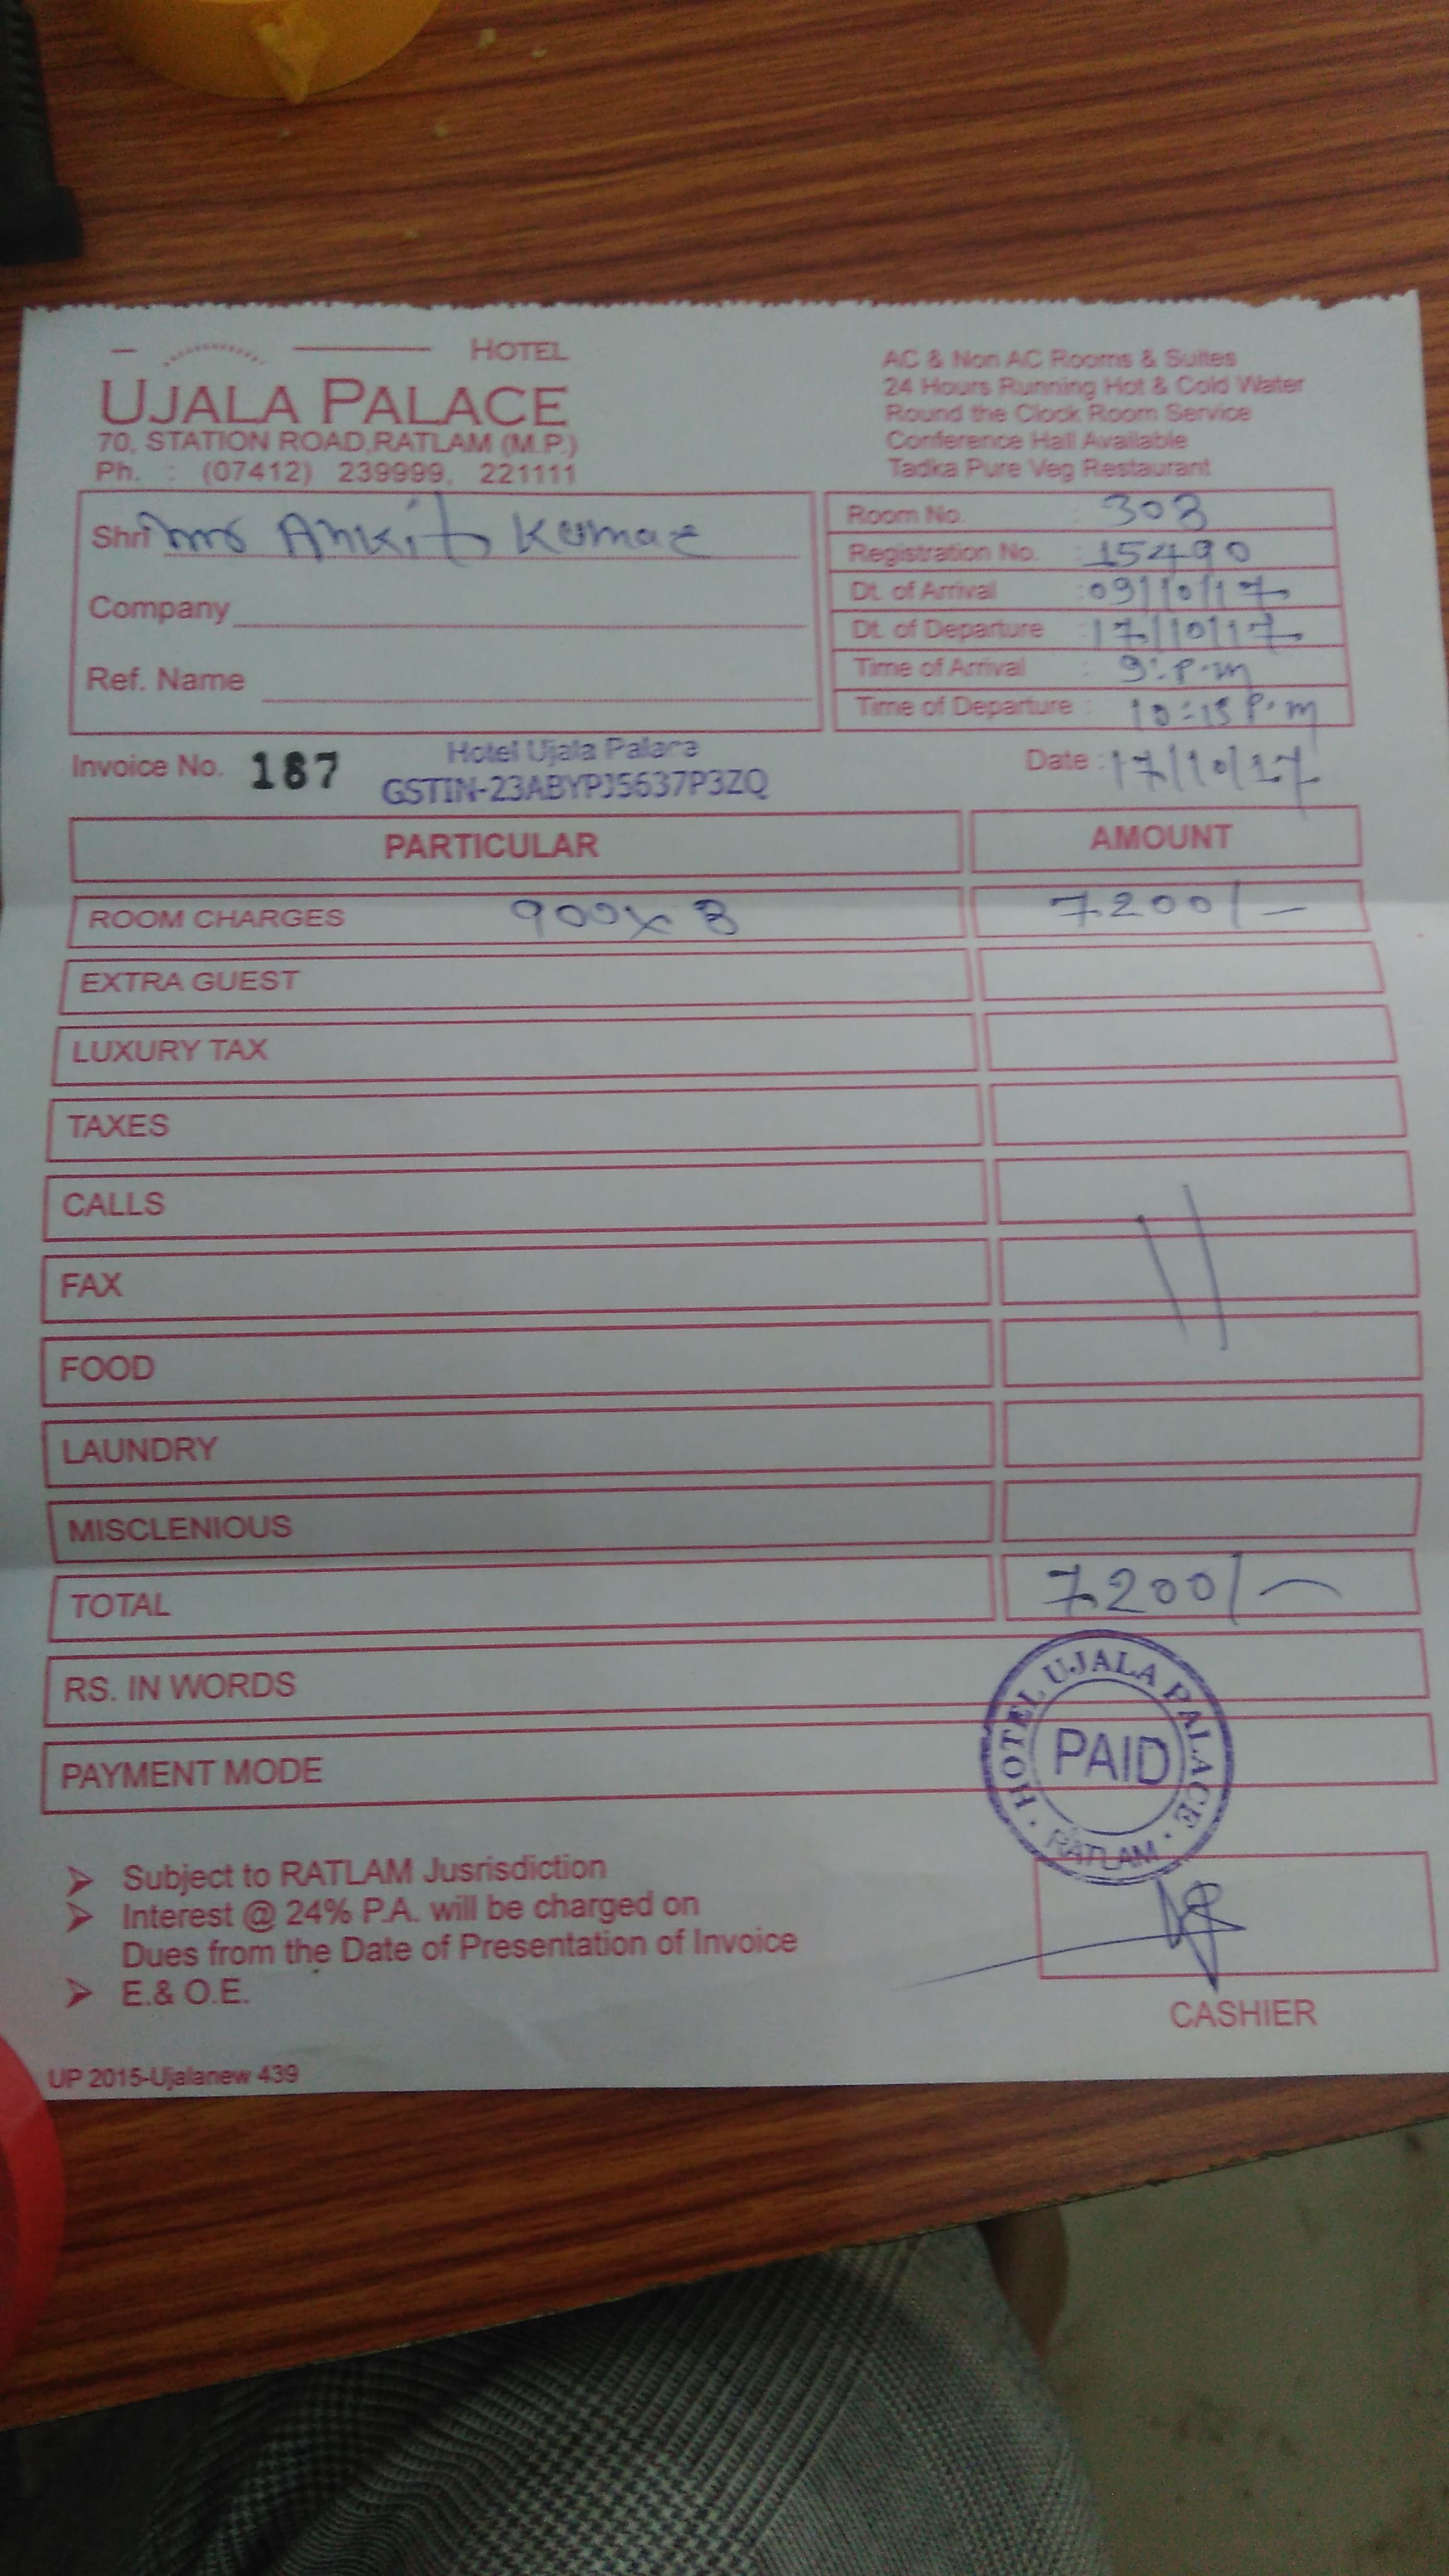 HOTEL
UJALA PALACE
70, STATION ROAD,RATLAM (M.P.)
Ph. : (07412) 239999, 221111
AC & Non AC Rooms & Suites
24 Hours Running Hot & Cold Water
Round the Clock Room Service
Conference Hall Available
Tadka Pure Veg Restaurant
Shri Mr Ankit Kumar
Company
Ref. Name
Room No. : 303
Registration No. : 15490
Dt. of Arrival : 09/10/17
Dt. of Departure : 17/10/17
Time of Arrival : 9: P.m
Time of Departure : 10:15 P.m
Invoice No. 187
Hotel Ujala Palace
GSTIN-23ABYPJ5637P3ZQ
Date : 17/10/17
PARTICULAR AMOUNT
ROOM CHARGES 900x8 7200/-
EXTRA GUEST
LUXURY TAX
TAXES
CALLS
FAX
FOOD
LAUNDRY
MISCLENIOUS
TOTAL 7200/-
RS. IN WORDS
PAYMENT MODE
HOTEL UJALA PALACE
PAID
RATLAM
➢ Subject to RATLAM Jusrisdiction
➢ Interest @ 24% P.A. will be charged on
Dues from the Date of Presentation of Invoice
➢ E.& O.E.
CASHIER
UP 2015-Ujalanew 439